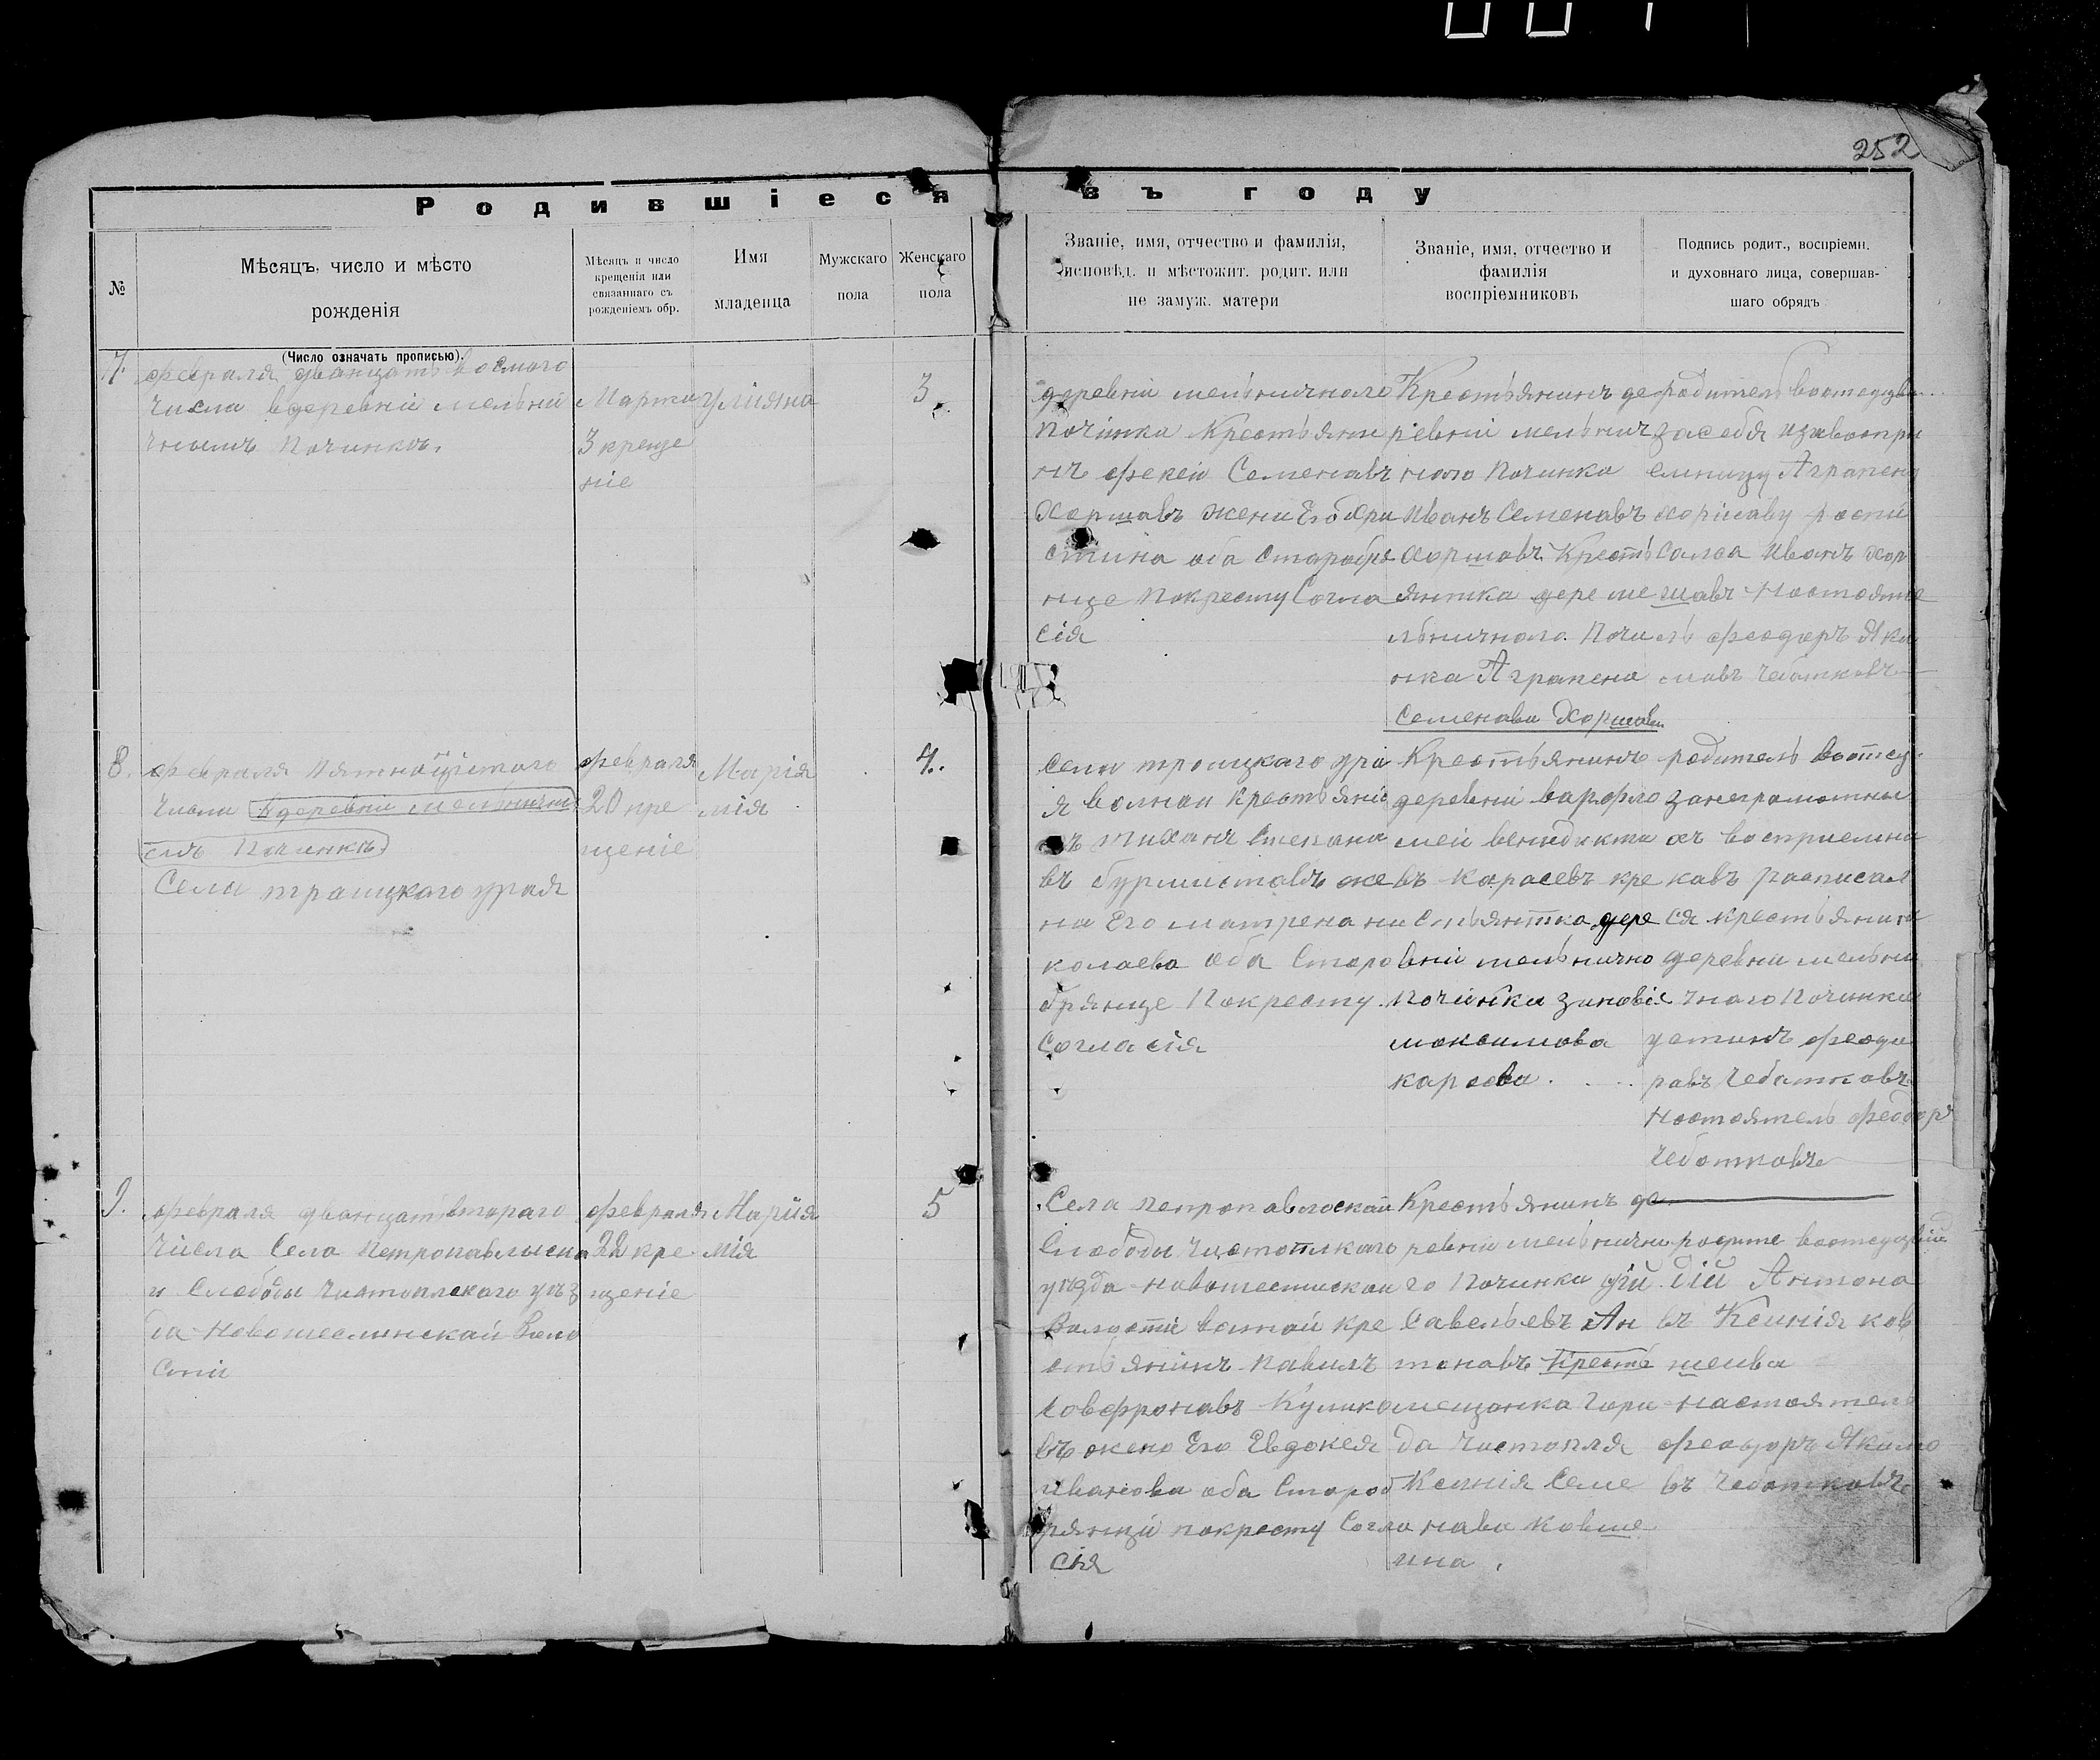 252
Родившіеся въ году
№
Мѣсяцъ, число и мѣсто
рожденія
(Число означать прописью).
Мѣсяцъ и число
крещенія или
связаннаго съ
рожденіемъ обр.
Имя
младенца
Мужскаго
пола
Женскаго
пола
Званіе, имя, отчество и фамилія,
исповѣд. и мѣстожит. родит. или
не замуж. матери
Званіе, имя, отчество и
фамилія
воспріемниковъ
Подпись родит., воспріемн.
и духовнаго лица, совершав-
шаго обрядъ
7.
февраля дванцать восмого
числа вдеревніе мельни
чнымъ Починкъ.
Марта
3 креще
ніе
Улияна
3
деревни мельничного
Починка Крестьяни
нъ Семенавъ
Хоршавъ жена Его Хри
стина оба старобря
нце Покресту Согла
сія
Крестьянинъ де
ревни мельнич
ного Починка
Иванъ Семенавъ
Хоршавъ Кресть
янтка дере ме
льничного Почи
нка Аграпена
Семенава Хоршава
родитель
засебя
емницу Аграпену
Хоршаву роспи
салса Иванъ Хор
шавъ Настояте
ль феодоръ Яки
мовъ Чеботковъ
8.
февраля Пятнацетого
числа вдеревни мельнични
емъ Починкъ
Села траицкаго урая
февраля
20 кре
щеніе
Марія
мія
4.
Села троицкаго ура
я волнои крестьяни
нъ Степана
въ бурмистовъ же
на Его матрена ни
колаева оба Старо
брянце Покресту
Согласія
Крестьянинъ
деревни варфло
меи венидикта
въ Карасевъ кре
стьянтка дере
вни мельнично
Починка Зиновія
максимова
карасва
родитель
занеграмотны
хъ восприемни
кавъ расписал
ся крестьянинъ
деревни мельни
чнаго Починка
устинъ феода
равъ Чеботковъ
Настоятель феодоръ
Чеботковъ
9.
февраля дванцать втораго
числа Села Петропавлыско
и Слободы Чистоплскаго уѣз
да Новошеминскаи Воло
сти
февраля
22 кре
щеніе
Марія
мія
5
Села петропавлоской
Слободы Чистоплкаго
уѣзда новошешминскаи
Волости кре
стьянинъ павилъ
Совфронавъ Кулико
въ жена Его Евдокея
Иванова оба Староб
рянци покресту Согла
сія
Крестьянинъ де
ревни мельнични
го Починка
Савельевъ Ан
тонавъ Кресть
мещанка горо
да Чистопля
Ксинія Семе
нава Ковше
ина.
Антона
въ Ксинія ков
шеива
настоятель
феодоръ Якимо
въ Чеботковъ